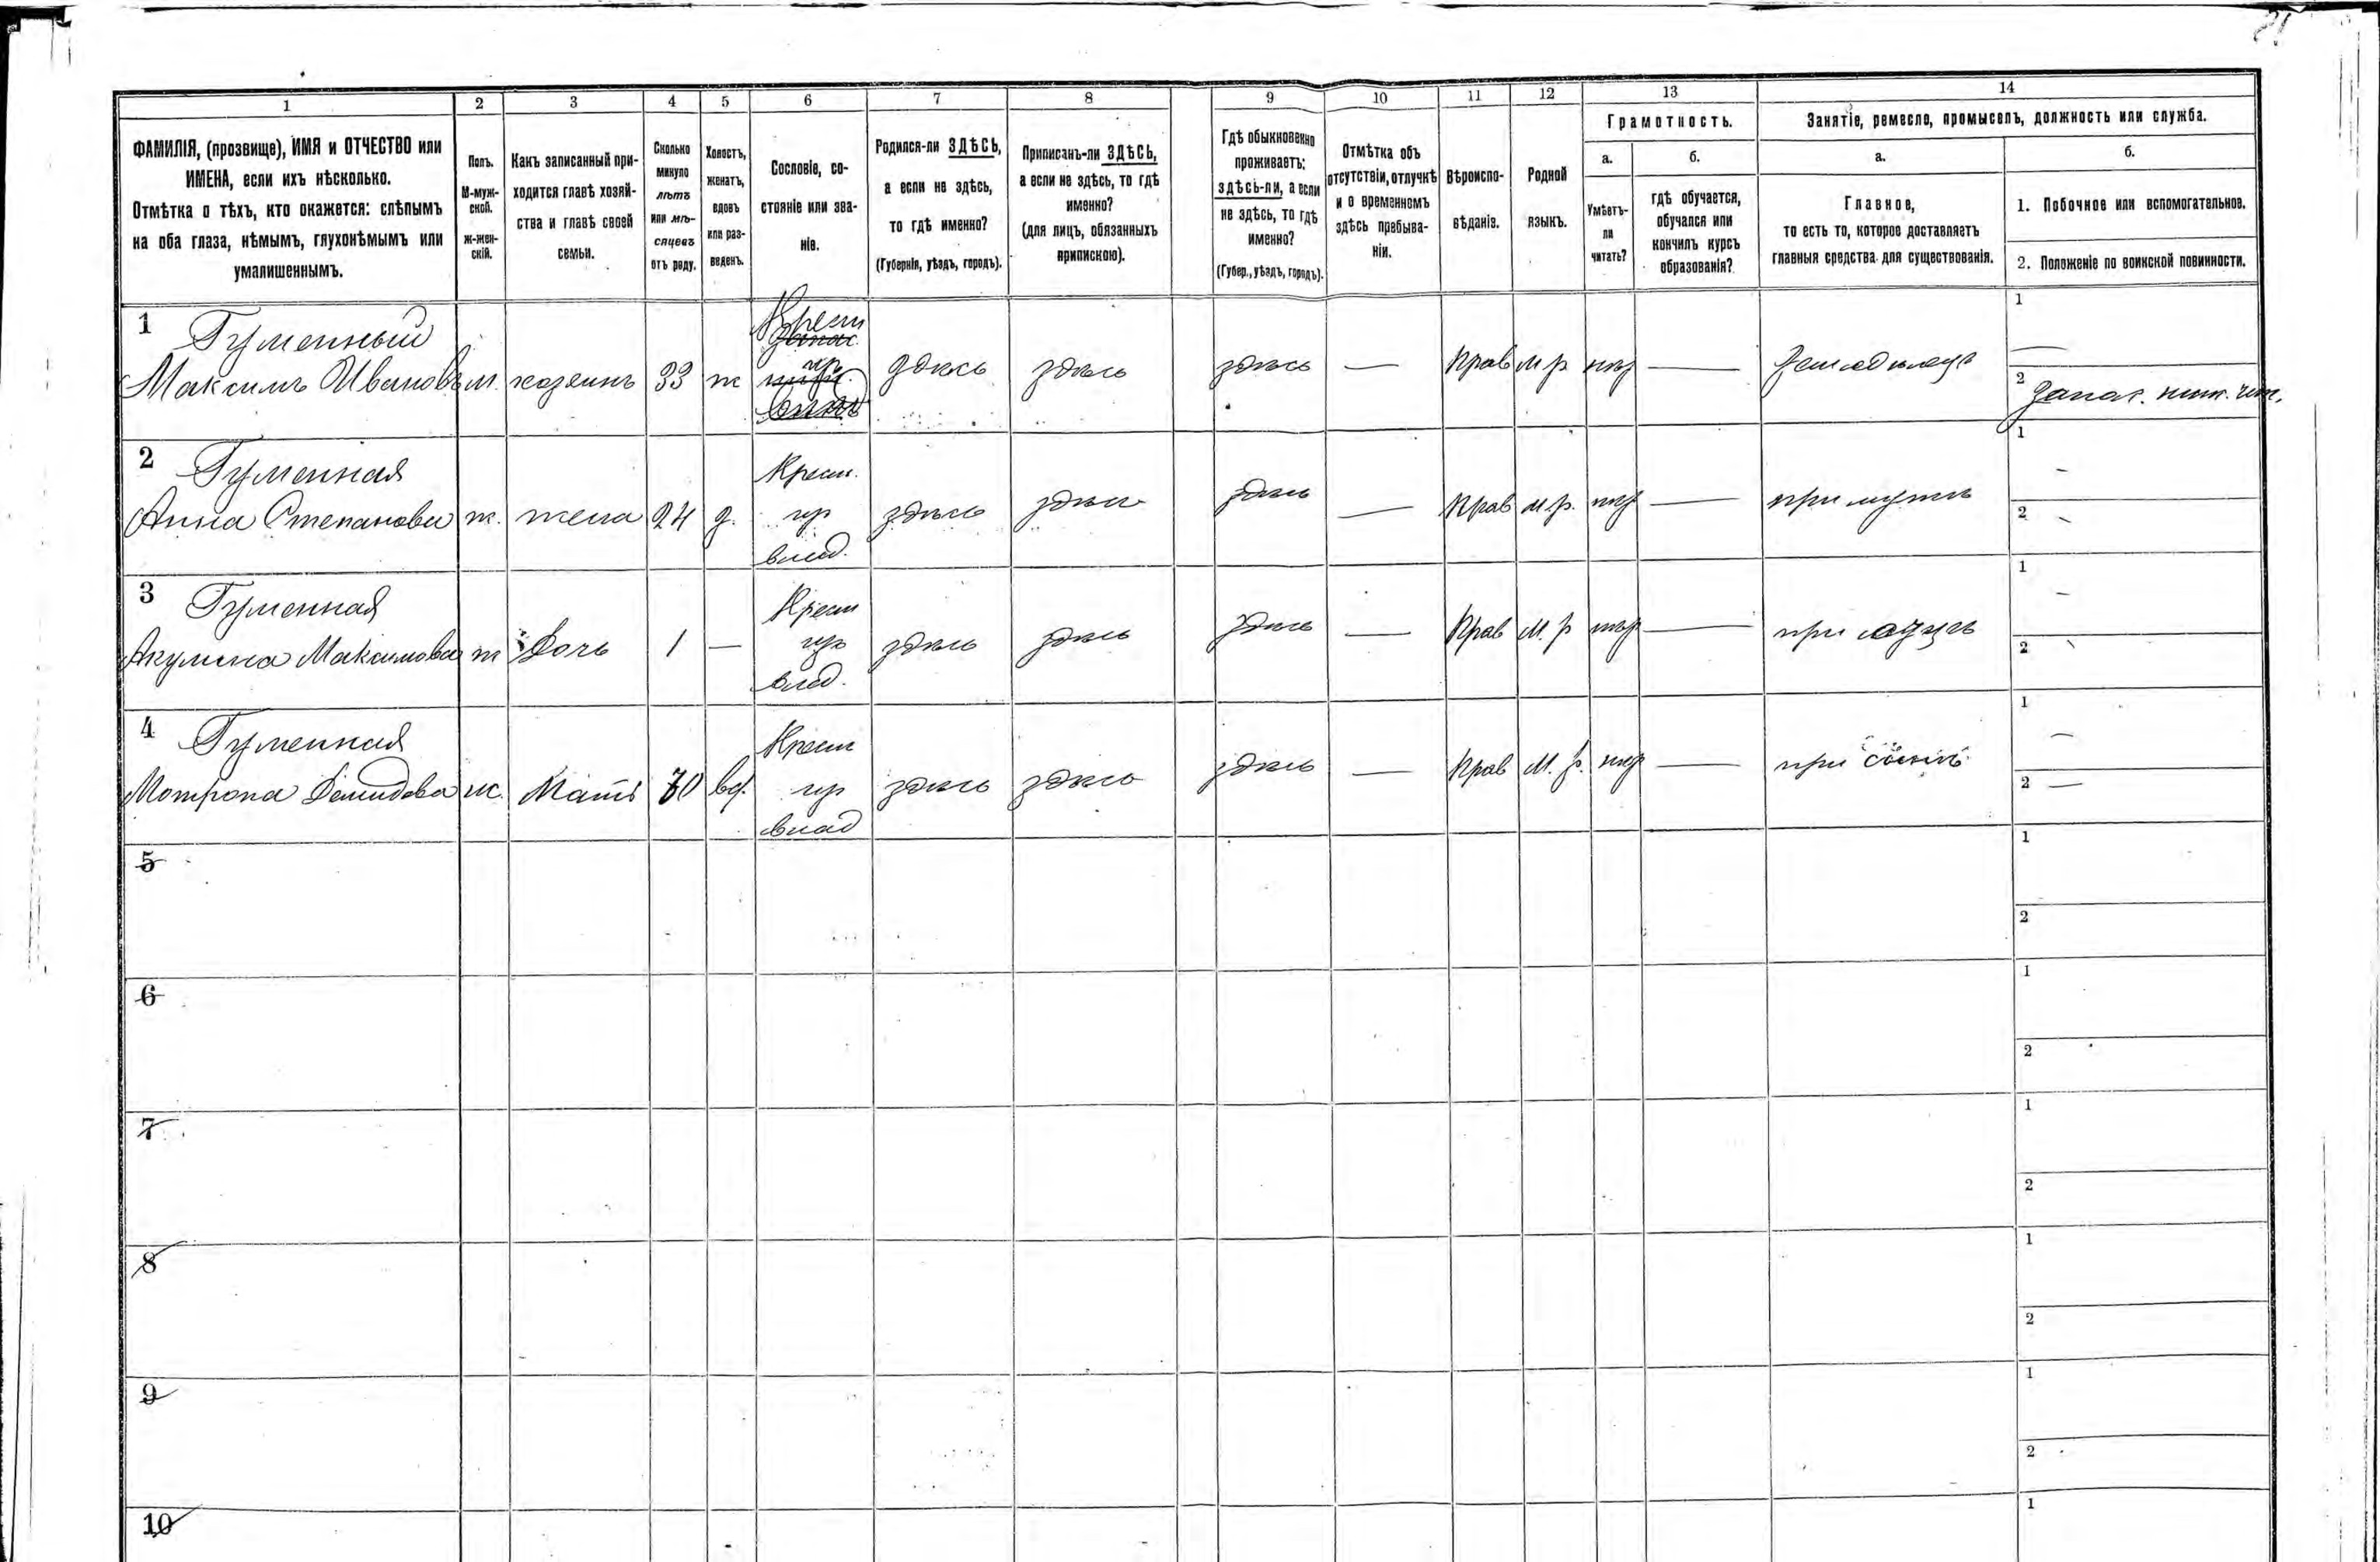 21
1 2 3 4 5 6 7 8 9 10 11 12 13 14
ФАМИЛІЯ, (прозвище), ИМЯ и ОТЧЕСТВО или
ИМЕНА, если ихъ нѣсколько.
Отмѣтка о тѣхъ, кто окажется: слѣпымъ
на оба глаза, нѣмымъ, глухонѣмымъ или
умалишеннымъ.
Полъ.
М-муж-
ской.
ж-жен-
скій.
Какъ записанный при-
ходится главѣ хозяй-
ства и главѣ своей
семьи.
Сколько
минуло
лѣтъ
или мѣ-
сяцевъ
отъ роду.
Холостъ,
женатъ,
вдовъ
или раз-
веденъ.
Сословіе, со-
стояніе или зва-
ніе.
Родился-ли ЗДѢСЬ,
а если не здѣсь,
то гдѣ именно?
(Губернія, уѣздъ, городъ).
Приписанъ-ли ЗДѢСЬ,
а если не здѣсь, то гдѣ
именно?
(для лицъ, обязанныхъ
припискою).
Гдѣ обыкновенно
проживаетъ:
здѣсь-ли, а если
не здѣсь, то гдѣ
именно?
(Губер., уѣздъ, городъ).
Отмѣтка объ
отсутствіи, отлучкѣ
и о временномъ
здѣсь пребыва-
ніи.
Вѣроиспо-
вѣданіе.
Родной
языкъ.
Грамотность.
а.
Умѣетъ-
ли
читать?
б.
гдѣ обучается,
обучался или
кончилъ курсъ
образованія?
Занятіе, ремесло, промыселъ, должность или служба.
а.
Главное,
то есть то, которое доставляетъ
главныя средства для существованія.
б.
1. Побочное или вспомогательное.
2. Положеніе по воинской повинности.
1 Гуменный
Максимъ Ивановъ м. хозяинъ 33 ж
Крест
здѣсь здѣсь здѣсь — Прав м р нѣт — земледѣлецъ
1 —
2 запас. ниж. чин.
2 Гуменная
Анна Степанова ж. жена 24 з.
Крест.
влад.
здѣсь здѣсь здѣсь — Прав м.р. нѣт — при мужѣ
1 -
2 -
3 Гуменная
Акулина Максимова ж Дочь 1 —
Крест
влад.
здѣсь здѣсь здѣсь — Прав М. р нѣт — при отцѣ
1 -
2 -
4 Гуменная
Мотрона Демидова ж. Мать 70 вд.
Крест
влад
здѣсь здѣсь здѣсь — Прав М. р. нѣт — при сынѣ
1 —
2 —
5
1
2
6
1
2
7
1
2
8
1
2
9
1
2
10
1